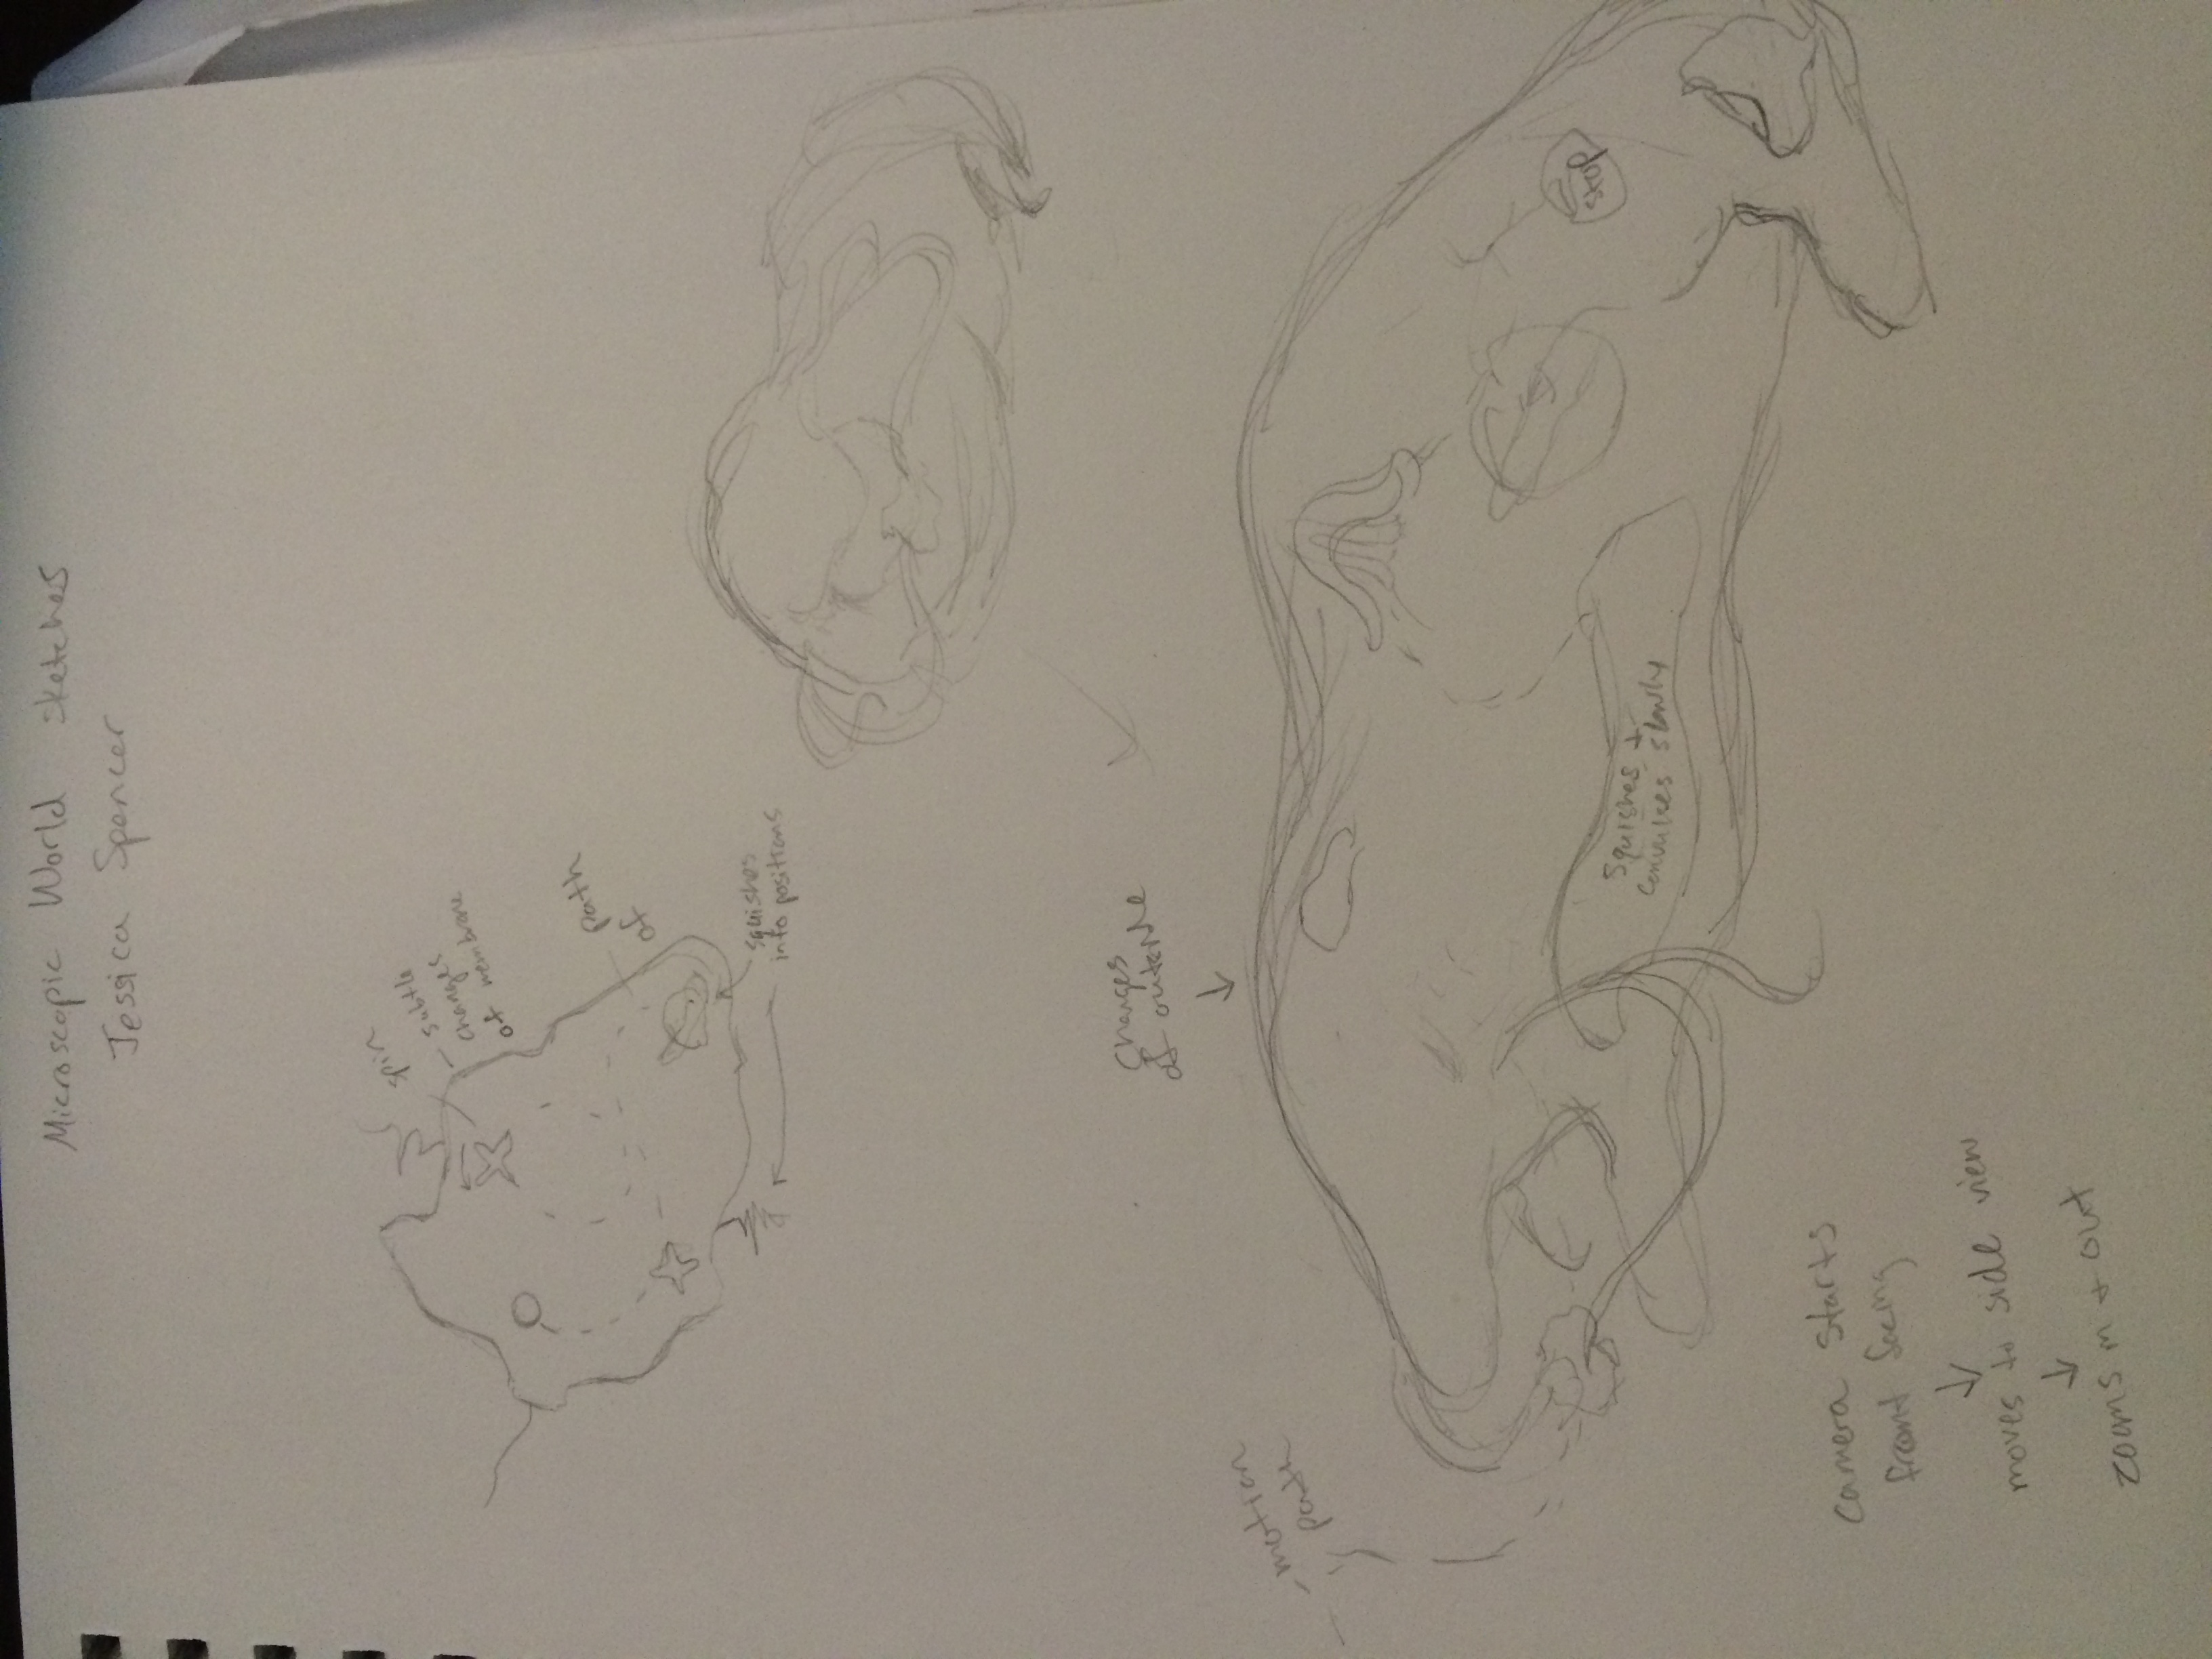 Microscopic World sketches
Jessica Spencer
spin
subtle
changes
of membrane
path
of
squishes
into positions
Changes
of outside
motion
path
Squishes +
convulses slowly
stop
camera starts
front facing
moves to side view
zooms in + out